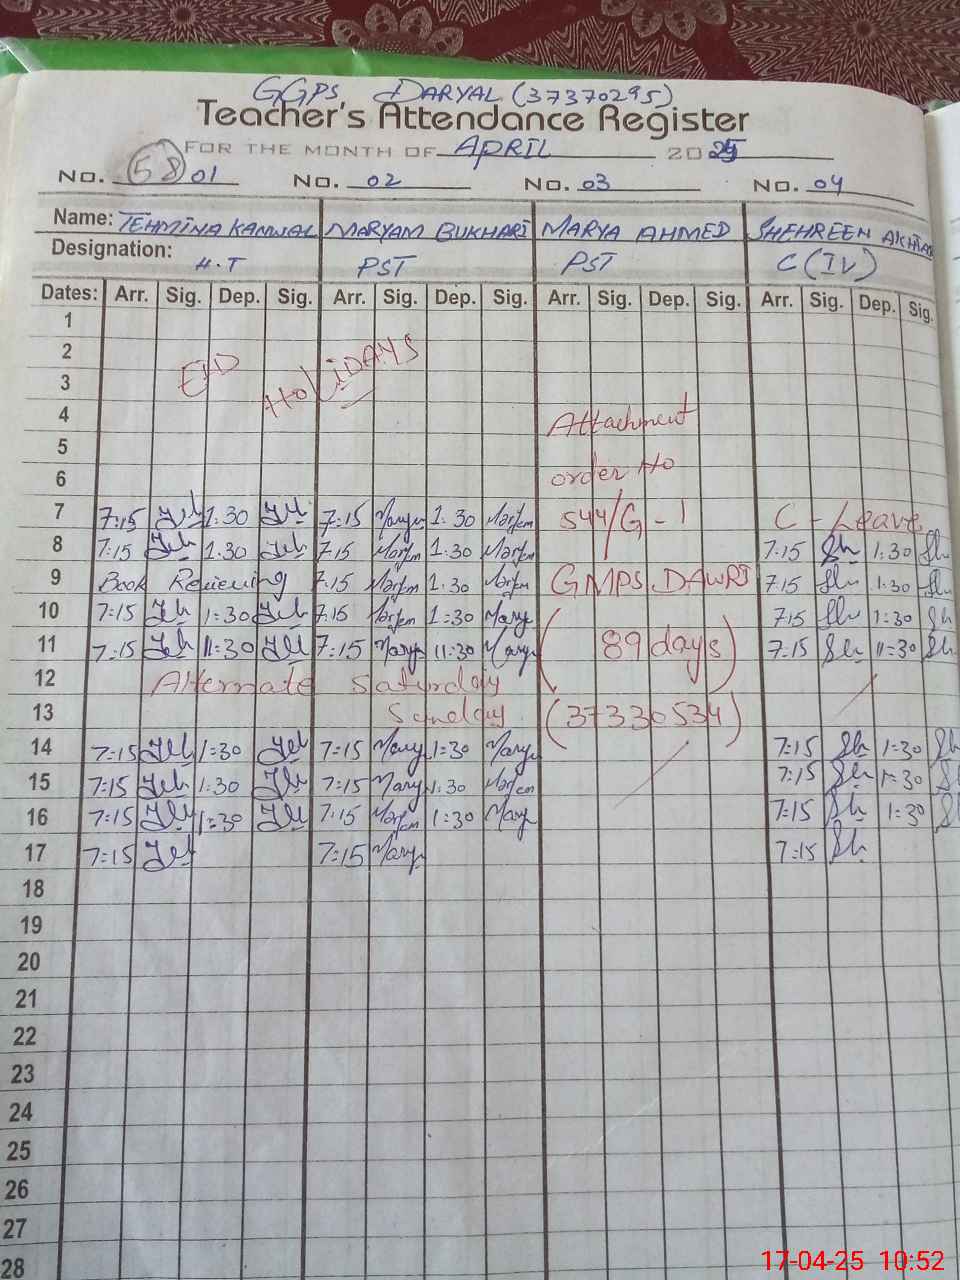 GGPS DARYAL (37370295)
Teacher's Attendance Register
FOR THE MONTH OF APRIL 2025
No. (58) 01 No. 02 No. 03 No. 04
Name: TEHMINA KANWAL MARYAM BUKHARI MARYA AHMED SHEHREEN AKHTAR
Designation: H.T PST PST C (IV)
Dates: Arr. Sig. Dep. Sig. Arr. Sig. Dep. Sig. Arr. Sig. Dep. Sig. Arr. Sig. Dep. Sig.
1
2 EID HOLIDAYS
3
4 Attachment
5
6 order No
7 7:15 1:30 7:15 Maryam 1:30 Maryam 544/G-1 C-Leave
8 7:15 1:30 7:15 Maryam 1:30 Maryam 7:15 Sh 1:30 Sh
9 Book Recieving 7:15 Maryam 1:30 Maryam GMPS DAWRI 7:15 Sh 1:30 Sh
10 7:15 1:30 7:15 Maryam 1:30 Maryam 7:15 Sh 1:30 Sh
11 7:15 11:30 7:15 Maryam 11:30 Maryam (89 days) 7:15 Sh 11:30 Sh
12 Alternate Saturday
13 Sunday (37330534)
14 7:15 1:30 7:15 Maryam 1:30 Maryam 7:15 Sh 1:30 Sh
15 7:15 1:30 7:15 Maryam 1:30 Maryam 7:15 Sh 1:30 Sh
16 7:15 1:30 7:15 Maryam 1:30 Maryam 7:15 Sh 1:30 Sh
17 7:15 7:15 Maryam 7:15 Sh
18
19
20
21
22
23
24
25
26
27
28
17-04-25 10:52